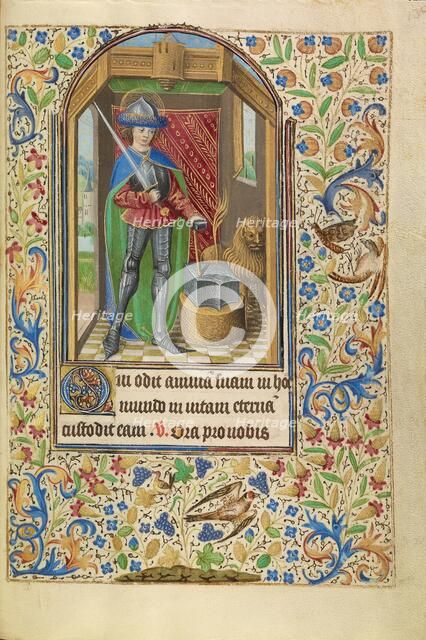 Qui odit animā suam in hoc
mundo in uitam eternā
custodit eam. V. Ora pro nobis
Heritage
Heritage
Heritage
Heritage
Heritage
Heritage